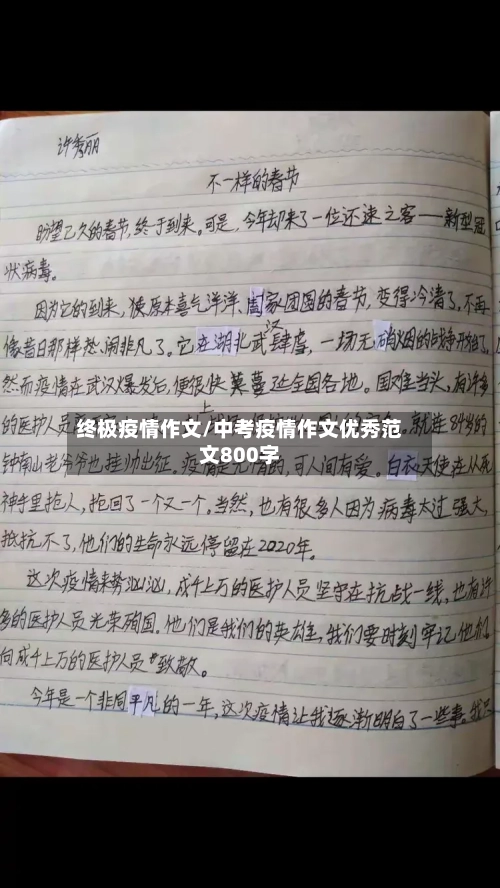 许秀丽
不一样的春节
盼望已久的春节,终于到来。可是,今年却来了一位还速之客——新型冠
状病毒。
因为它的到来,使原本喜气洋洋、阖家团圆的春节,变得冷清了,不再
像昔日那样热闹非凡了。它在湖北武汉肆虐,一场无硝烟的战争开始了。
然而疫情在武汉爆发后,便很快蔓延全国各地。国难当头,有许多
的医护人员
上
就连84岁的
终极疫情作文/中考疫情作文优秀范
文800字
钟南山老爷爷也挂帅出征。疫情是无情的,可人间有爱。白衣天使在从死
神手里抢人,抢回了一个又一个。当然,也有很多人因为病毒太过强大,
抵抗不了,他们的生命永远停留在2020年。
这次疫情来势汹汹,成千上万的医护人员坚守在抗战一线,也有许
多的医护人员光荣殉国。他们是我们的英雄,我们要时刻牢记他们,
向成千上万的医护人员致敬。
今年是一个非同平凡的一年,这次疫情让我逐渐明白了一些事。我